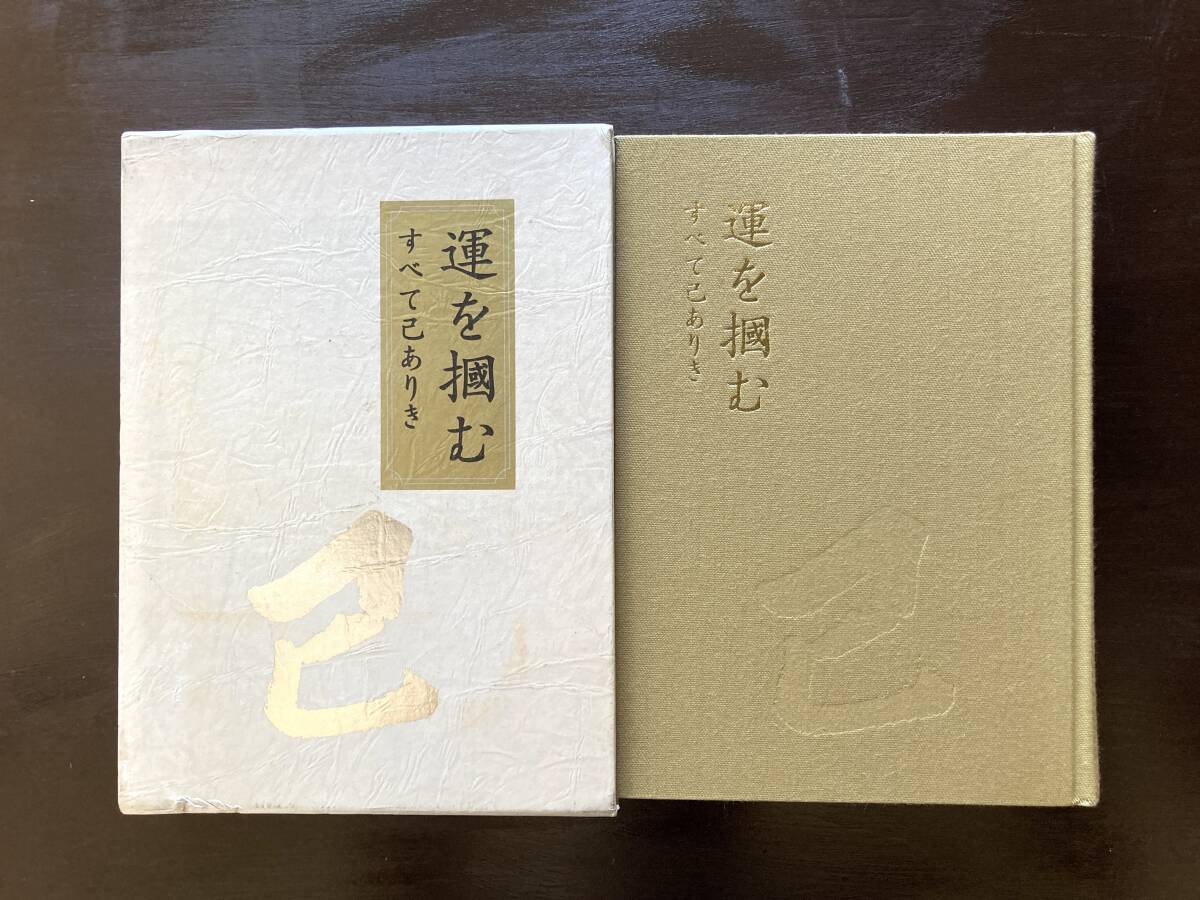 運を摑む
すべて己ありき
己
運を摑む
すべて己ありき
己